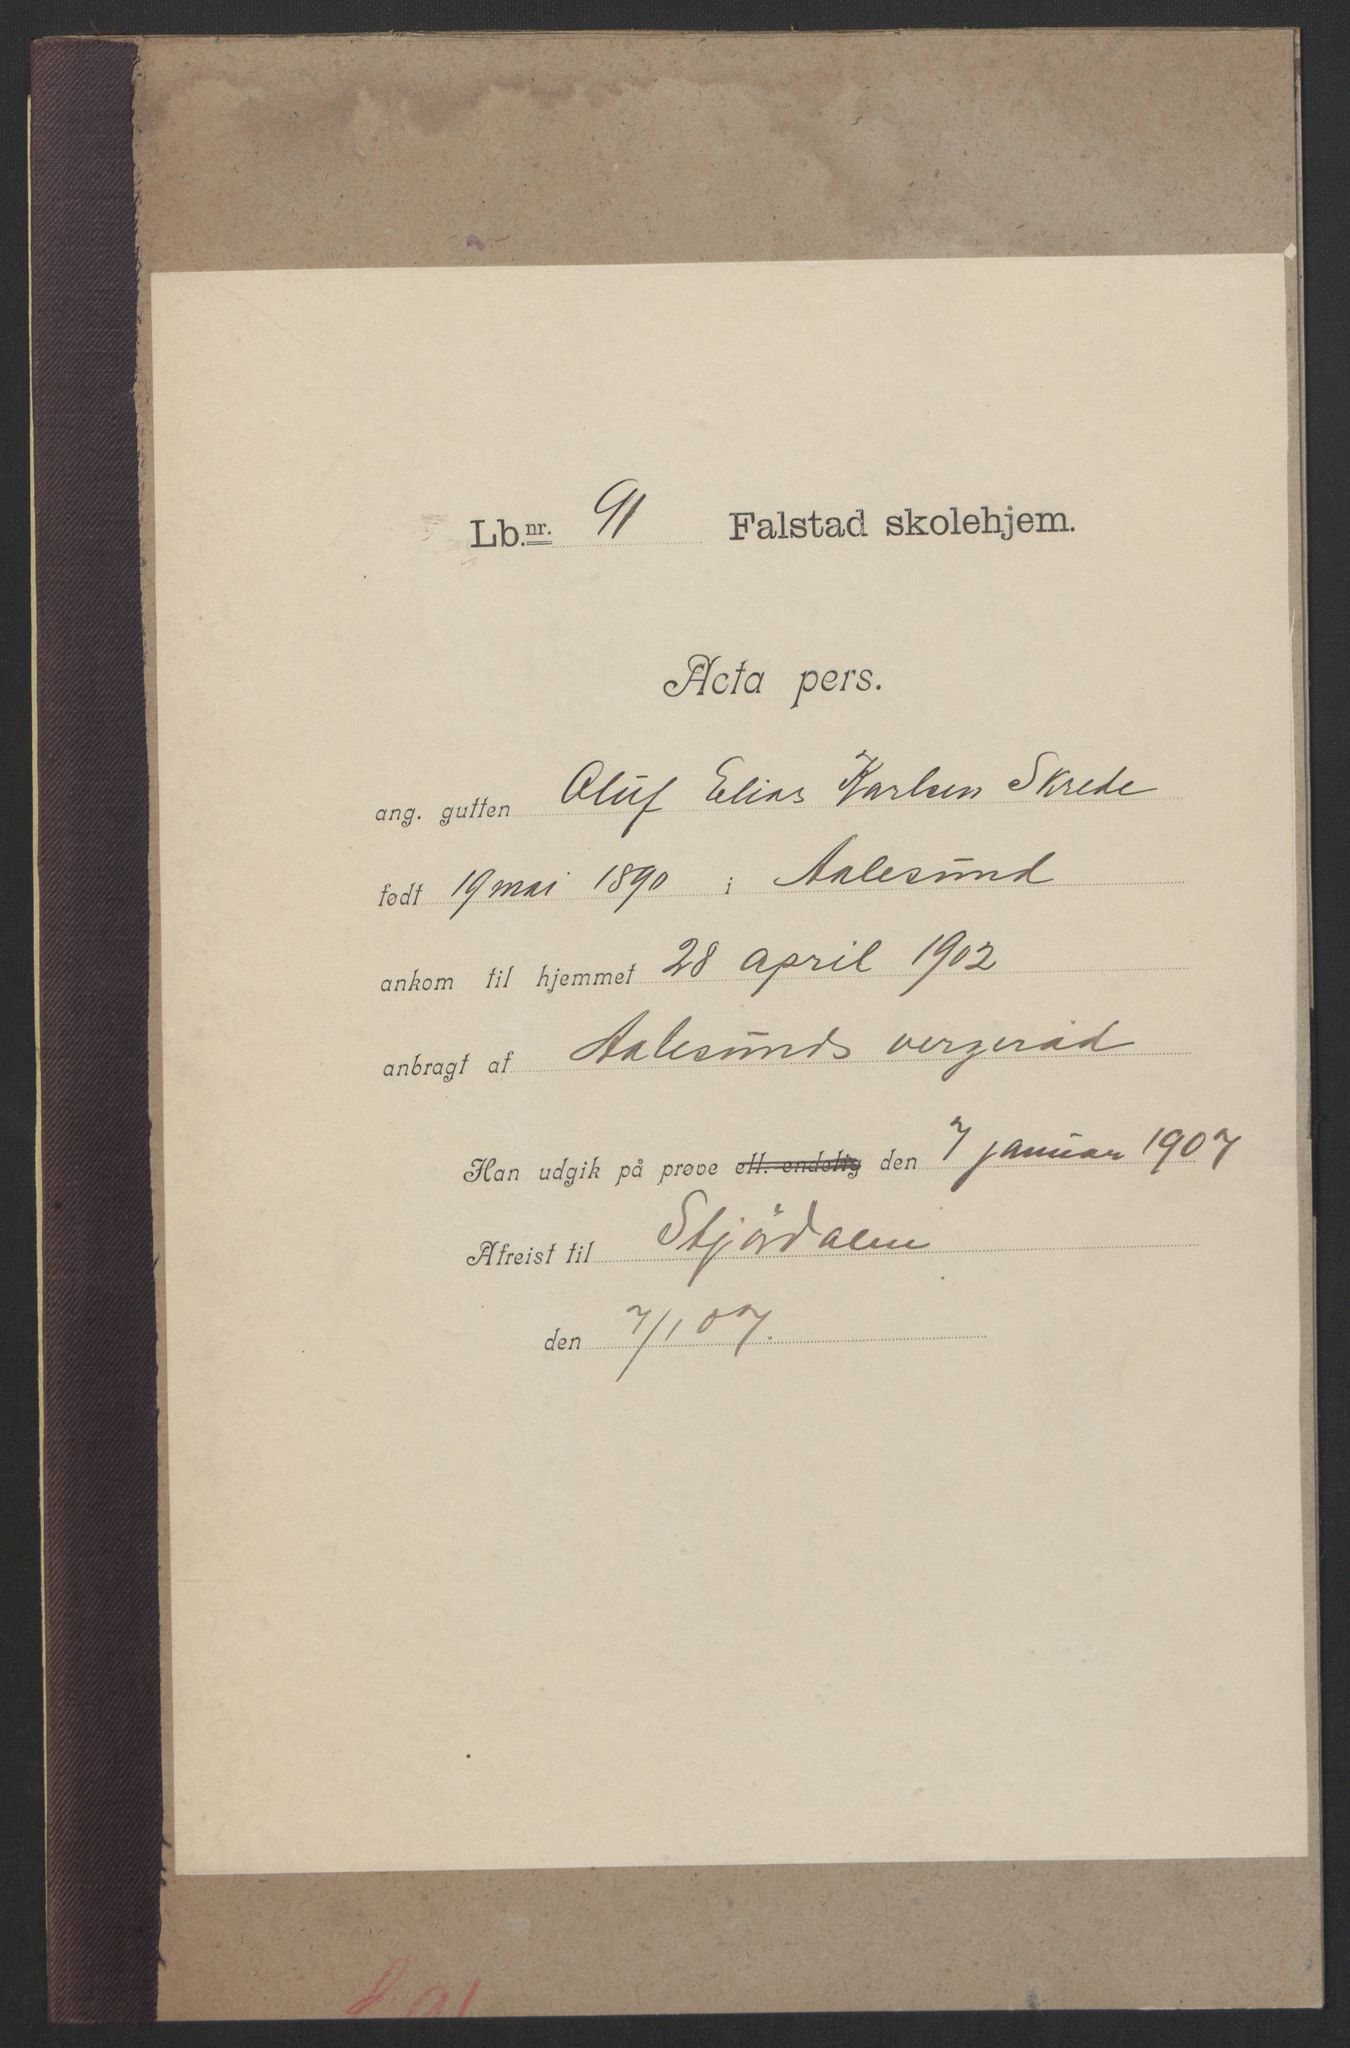 Lb.nr. 91 Falstad skolehjem.
Acta pers.
ang. gutten Oluf Elias Karlsen Skrede
født 19 mai 1890 i Aalesund
ankom til hjemmet 28 april 1902
anbragt af Aalesunds vergeråd
Han udgik på prøve ell. endelig den 7 januar 1907
Afreist til Stjørdalen
den 7/1 07.